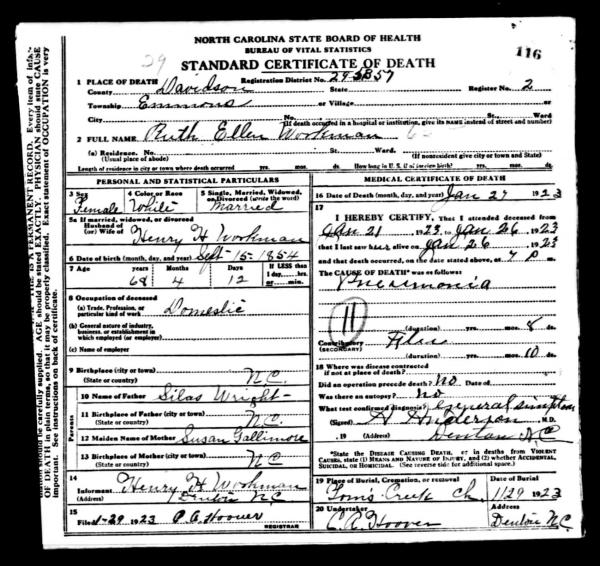 NORTH CAROLINA STATE BOARD OF HEALTH
BUREAU OF VITAL STATISTICS
29
116
STANDARD CERTIFICATE OF DEATH
1 PLACE OF DEATH Registration District No. 29-5857 Register No. 2
County Davidson State
Township Emmons or Village
City No. St. Ward
(If death occurred in a hospital or institution, give its NAME instead of street and number)
2 FULL NAME Ruth Ellen Workman
(a) Residence. No. St. Ward
(Usual place of abode) (If nonresident give city or town and State)
Length of residence in city or town where death occurred yrs. mos. ds. How long in U. S. if of foreign birth? yrs. mos. ds.
PERSONAL AND STATISTICAL PARTICULARS
3 Sex 4 Color or Race 5 Single, Married, Widowed, or Divorced (write the word)
Female White Married
5a If married, widowed, or divorced
Husband of
(or) Wife of Henry H Workman
6 Date of birth (month, day, and year) Sept-15-1854
7 Age years Months Days If LESS than
1 day, hrs.
or min.
68 4 12
8 Occupation of deceased
(a) Trade, Profession, or
particular kind of work Domestic
(b) General nature of industry,
business, or establishment in
which employed (or employer)
(c) Name of employer
9 Birthplace (city or town)
(State or country) N.C.
Parents
10 Name of Father Silas Wright
11 Birthplace of Father (city or town)
(State or country) N.C.
12 Maiden Name of Mother Susan Gallimore
13 Birthplace of Mother (city or town)
(State or country) N.C.
14
Informant Henry H Workman
(Address) Denton N.C
15
Filed 1-29 1923 P.A. Hoover
REGISTRAR
MEDICAL CERTIFICATE OF DEATH
16 Date of Death (month, day, and year) Jan 27 1923
17
I HEREBY CERTIFY, That I attended deceased from
Jan 21 1923, Jan 26, 1923
that I last saw her alive on Jan 26 1923
and that death occurred, on the date stated above, at 7 P m.
The CAUSE OF DEATH* was as follows
Pneumonia
11
(duration) yrs. mos. 8 ds.
Contributory Flu
(SECONDARY)
(duration) yrs. mos. 10 ds.
18 Where was disease contracted
if not at place of death?
Did an operation precede death? No Date of
Was there an autopsy? no
What test confirmed diagnosis? General simptom
(Signed) Anderson M.D.
, 19 (Address) Denton N C
*State the DISEASE CAUSING DEATH, or in deaths from VIOLENT
CAUSES, state (1) MEANS AND NATURE OF INJURY, and (2) whether ACCIDENTAL,
SUICIDAL, or HOMICIDAL. (See reverse side for additional space.)
19 Place of Burial, Cremation, or removal Date of Burial
Toms Creek Ch. 1/29 1923
20 Undertaker Address
C.R. Hoover Denton N.C.
PERMANENT RECORD. Every item of infor-
should be carefully supplied. AGE should be stated EXACTLY. PHYSICIAN should state CAUSE
OF DEATH in plain terms, so that it may be properly classified. Exact statement of OCCUPATION is very
important. See instructions on back of certificate.